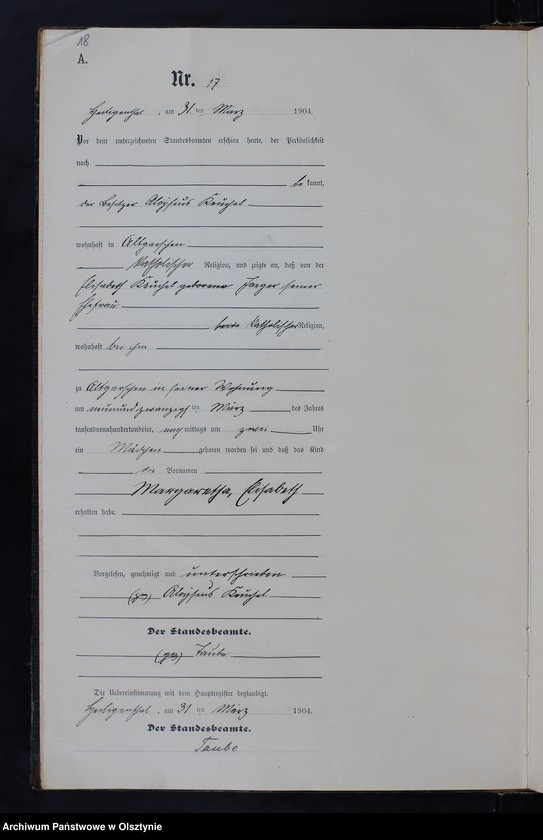 18
A.
Nr. 17
Heiligenthal, am 31 ten März 1904.
Vor dem unterzeichneten Standesbeamten erschien heute, der Persönlichkeit
nach
be kannt,
der Besitzer Aloysius Keuchel
wohnhaft in Altgarschen
katholischer Religion, und zeigte an, daß von der
Elisabeth Keuchel geborenen Jaeger seiner
Ehefrau
katholischer Religion,
wohnhaft bei ihm
zu Altgarschen in seiner Wohnung
am neunundzwanzigs ten März des Jahres
tausendneunhundertundvier, nach mittags um zwei Uhr
ein Mädchen geboren worden sei und daß das Kind
die Vornamen
Margaretha, Elisabeth
erhalten habe.
Vorgelesen, genehmigt und unterschrieben
(gez) Aloysius Keuchel
Der Standesbeamte.
(gez) Taube
Die Uebereinstimmung mit dem Hauptregister beglaubigt.
Heiligenthal, am 31 ten März 1904.
Der Standesbeamte.
Taube
Archiwum Państwowe w Olsztynie